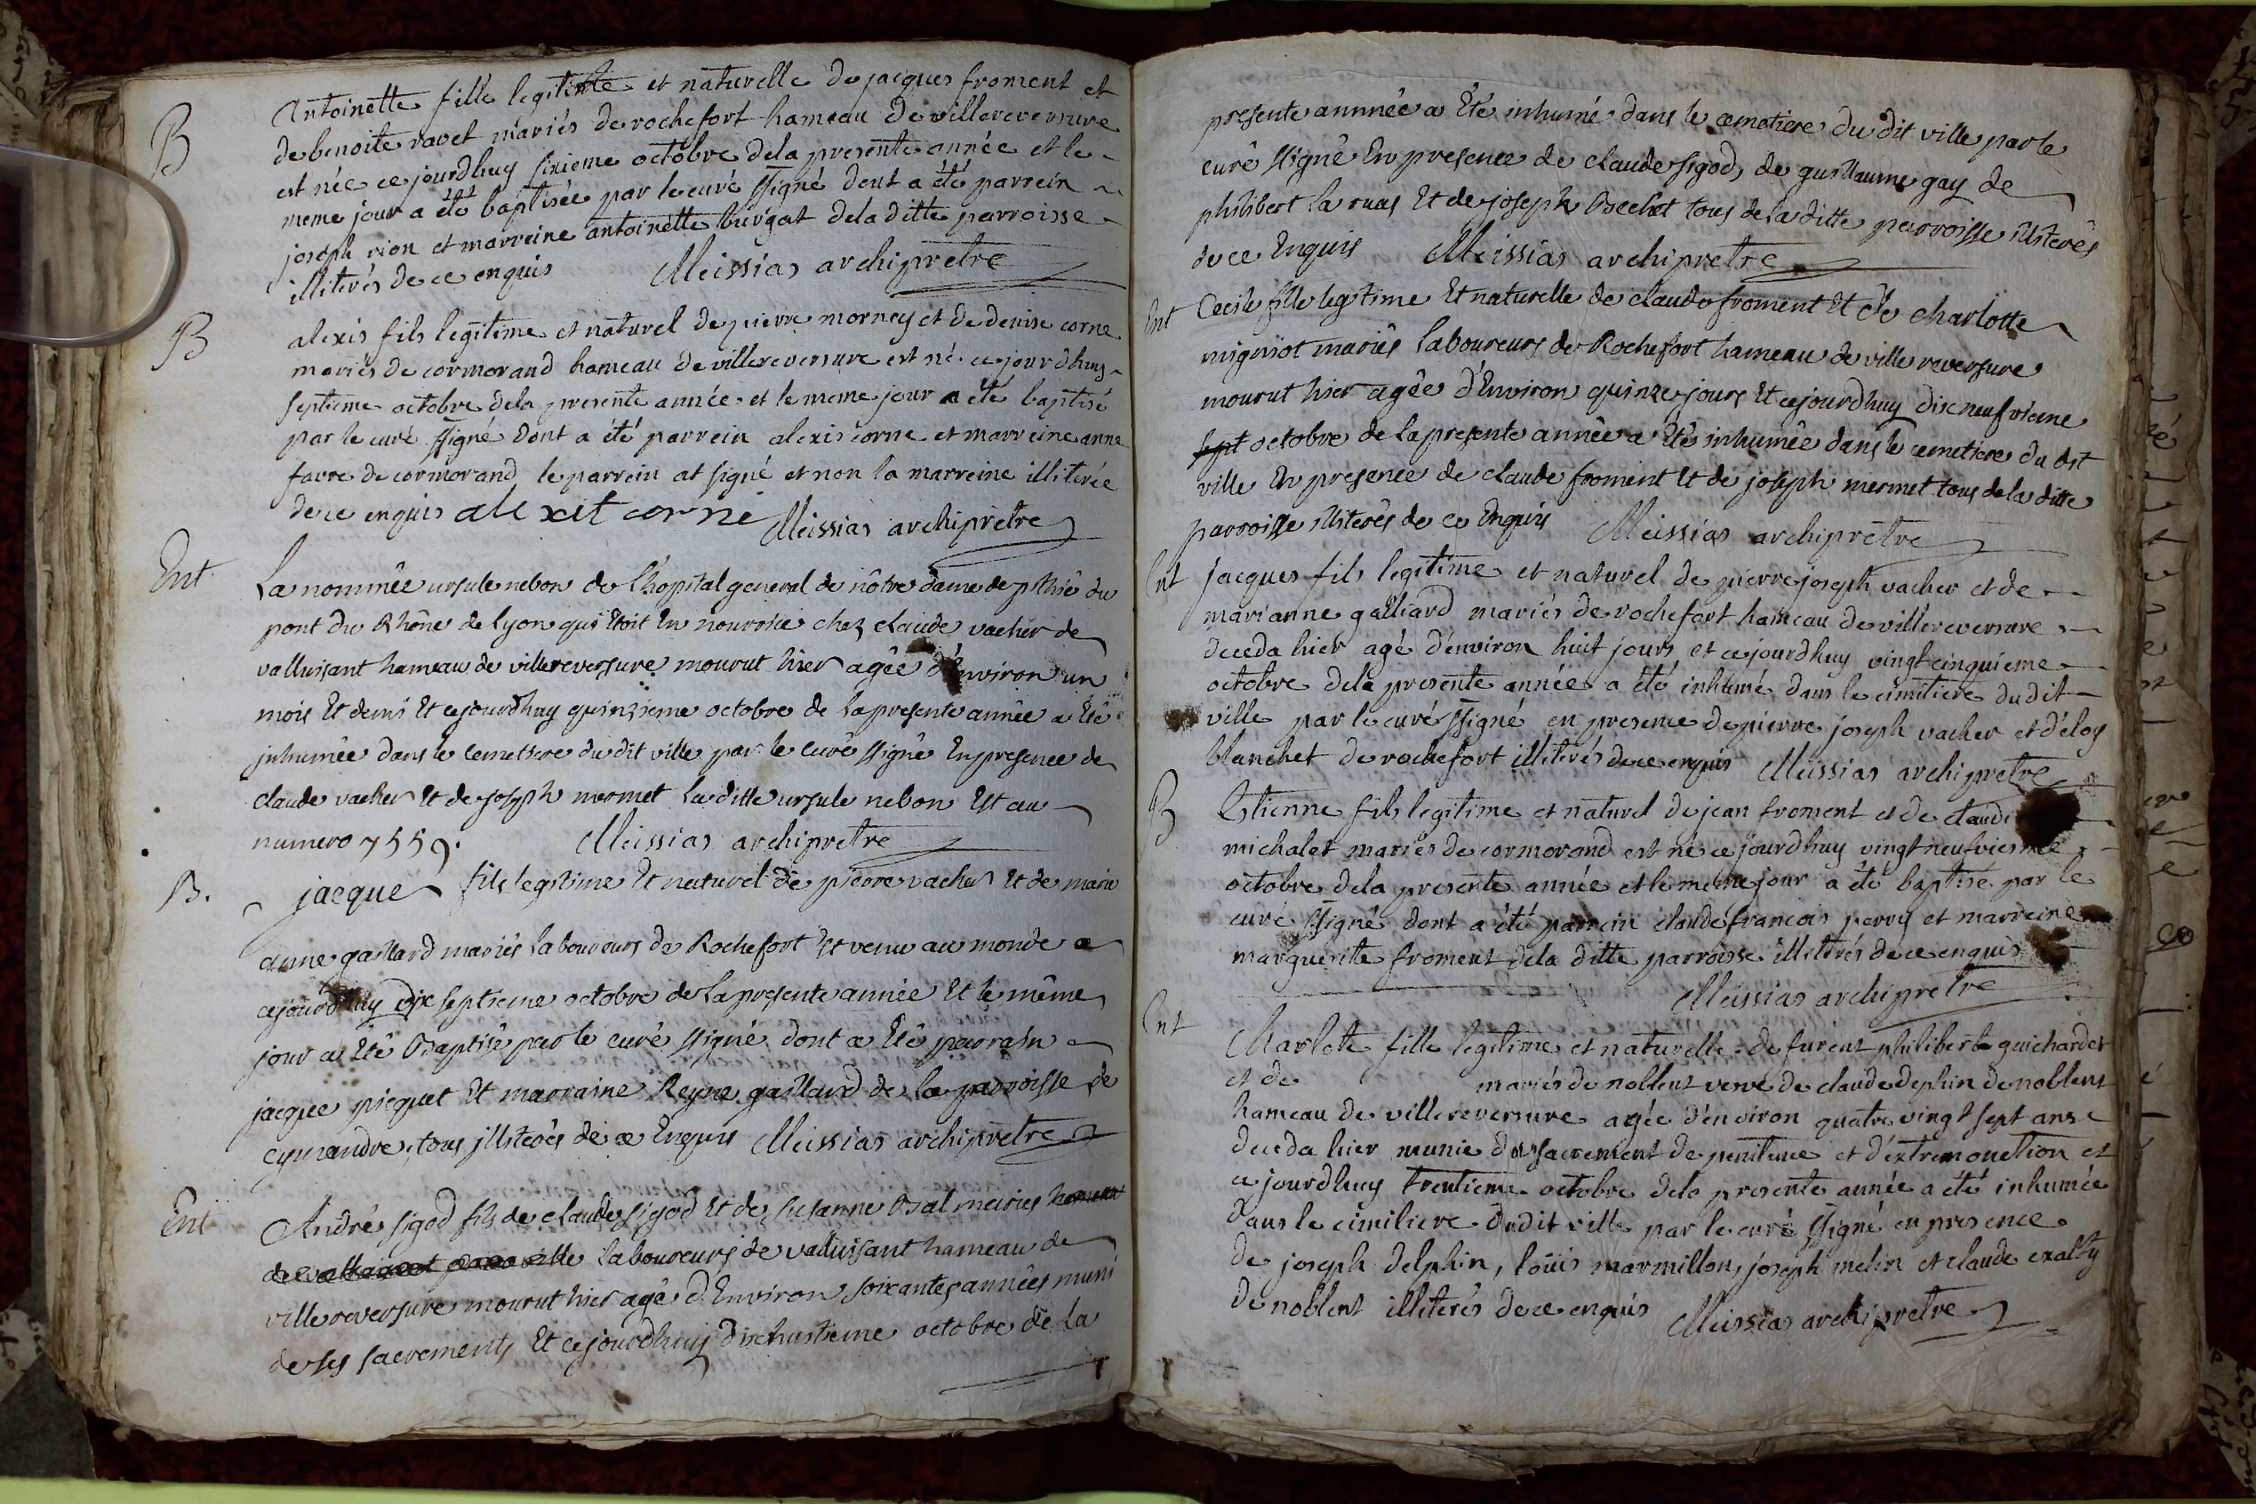 B
Antoinette fille legitime et naturelle de jacques froment et
de benoite ravet mariés de rochefort hameau de villereversure
est née ce jourdhuy sixieme octobre dela presente année et le
meme jour a été baptisée par le curé ssigné dont a été parrein
joseph rion et marreine antoinette burgat dela ditte parroisse
illiterés de ce enquis Meissias archipretre
B
alexis fils legitime et naturel de pierre morney et de denise corne
mariés de cormorand hameau de villereversure est né ce jourdhuy
septieme octobre dela presente année et le meme jour a été baptisé
par le curé ssigné dont a été parrein alexis corne et marreine anne
favre de cormorand le parrein at signé et non la marreine illiterée
de ce enquis alexit corne Meissias archipretre
Ent
La nommée ursule nebon de l'hopital general de nôtre dame de pithié du
pont du Rhône de Lyon qui êtoit En nourrice chez claude vacher de
valluisant hameau de villereversure mourut hier agêe d'Environ un
mois Et demi Et cejourdhuy quinzieme octobre de la presente annêe a Etê
inhumêe dans le cemetiere du dit ville par le curê ssignê En presence de
claude vacher Et de joseph mermet la ditte ursule nebon Est au
numero 7559. Meissias archipretre
B.
jacque fils legitime Et naturel de pierre vacher Et de marie
anne gaillard mariés laboureurs de Rochefort Est venu au monde
cejourdhuy dix septieme octobre de la presente annêe Et le même
jour a Etê Baptisê par le curê ssigné dont a Etê parrain
jacque picquet Et marraine Reyne gaillard de la parroisse de
ceyzeriaudre, tous illiterês de ce Enquis Meissias archipretre
Ent
André sigod fils de claude sigod Et de susanne Bal mariés
laboureurs de valluisant hameau de
villereversure mourut hier agê d'Environ soixantes années muni
de ses sacrements Et cejourdhuy dixhuitieme octobre de la
presente annnêe a Etê inhumé dans le cemetiere du dit ville par le
curê ssignê En presence de claude sigod, de guillaume gay de
philibert la ruas Et de joseph Bechet tous de la ditte parroisse illiterês
de ce Enquis Meissias archipretre
Ent
Cecile fille legitime Et naturelle de claude froment Et de charlotte
migniot mariés laboureurs de Rochefort hameau de villereversure
mourut hier agêe d'Environ quinze jours Et cejourdhuy dixneufvieme
sept octobre de la presente annêe a Etê inhumêe dans le cemetiere du dit
ville En presence de claude froment Et de joseph mermet tous de la ditte
parroisse illiterês de ce Enquis Meissias archipretre
Ent
jacques fils legitime et naturel de pierre joseph vacher et de
marianne galliard mariés de rochefort hameau de villereversure
deceda hier agé d'environ huit jours et cejourdhuy vingtcinquieme
octobre dela presente année a été inhumé dans le cimitiere dudit
ville par le curé ssigné en presence de pierre joseph vacher et d'éloy
blanchet de rochefort illiterés de ce enquis Meissias archipretre
B
Etienne fils legitime et naturel de jean froment et de claudi
michalet mariés de cormorand est né ce jourdhuy vingtneufviesme
octobre dela presente année et le meme jour a été baptisé par le
curé ssigné dont a été parrein claude francois perry et marreine
marguerite froment dela ditte parroisse illiterés de ce enquis
Meissias archipretre
Ent
Charlote fille legitime et naturelle de furent philiberte guichardet
et de mariés de noblent verve de claude delphin de noblent
hameau de villereversure agée d'environ quatre vingt sept ans
deceda hier munie des sacrement de penitence et d'extremonction et
ce jourdhuy trentieme octobre dela presente année a été inhumée
dans le cimitiere dudit ville par le curé ssigné en presence
de joseph delphin, loüis marmillon, joseph melin et claude exally
de noblent illiterés de ce enquis Meissias archipretre